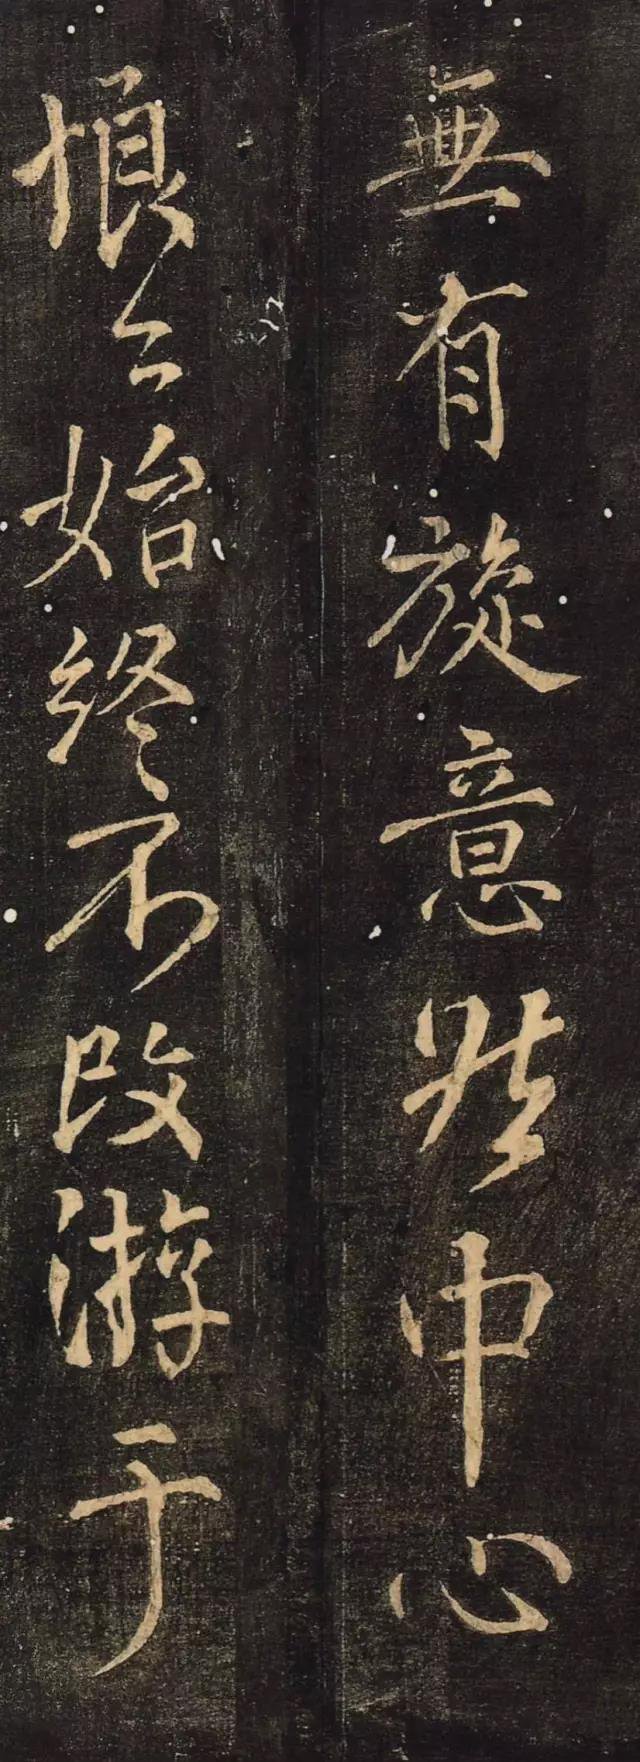 無有旋意然中心
悢々始終不改游于